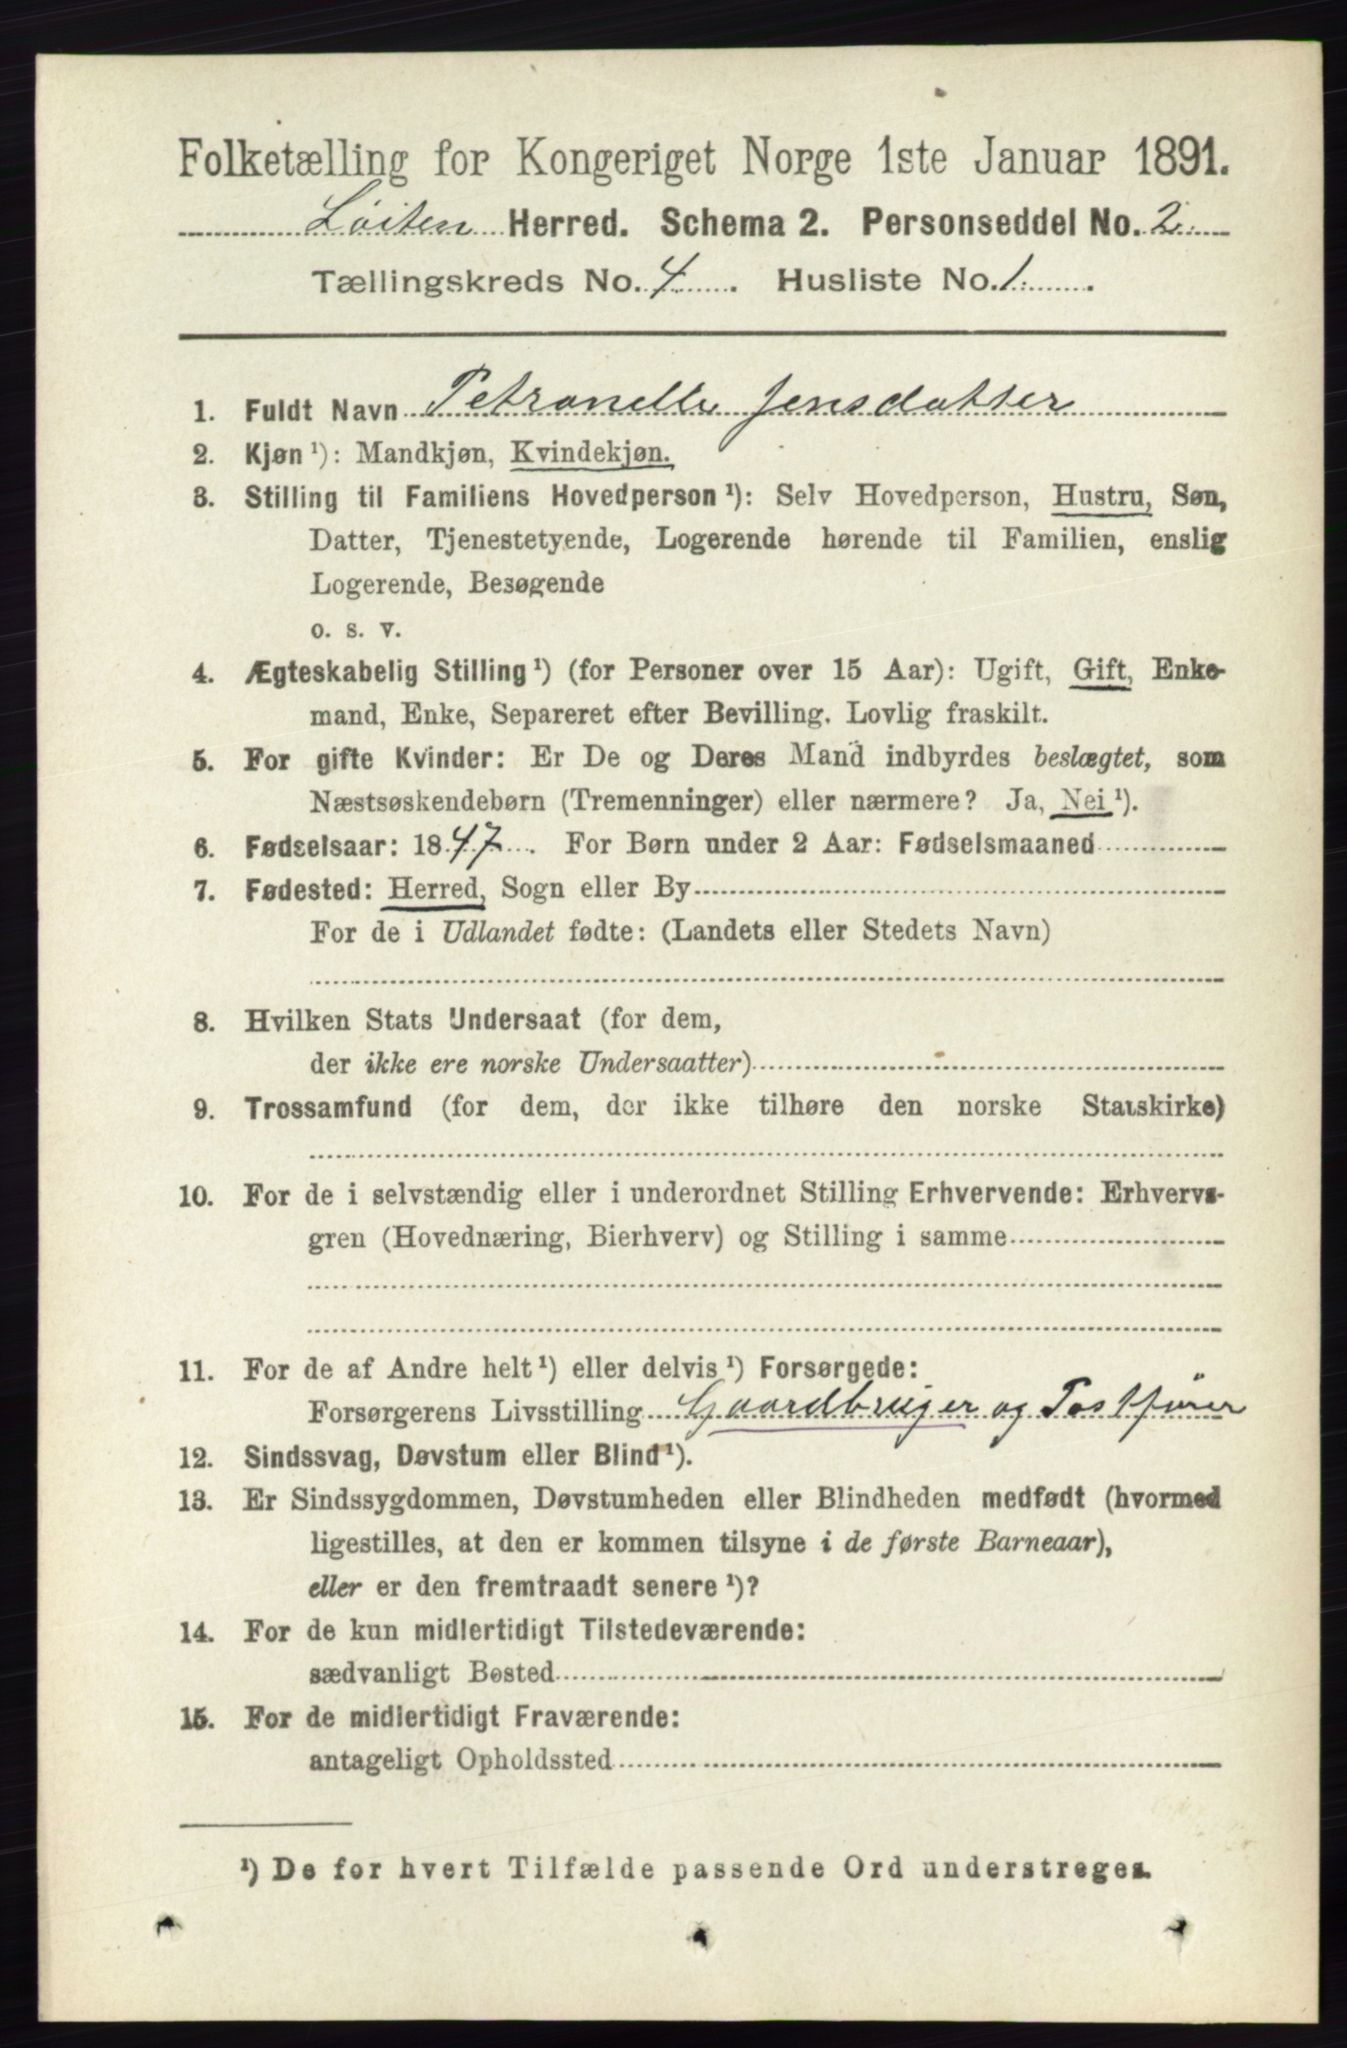 Folketælling for Kongeriget Norge 1ste Januar 1891.
Løiten Herred. Schema 2. Personseddel No. 2
Tællingskreds No. 4. Husliste No. 1.
1. Fuldt Navn Petronelle Jensdatter
2. Kjøn ¹): Mandkjøn, Kvindekjøn.
3. Stilling til Familiens Hovedperson ¹): Selv Hovedperson, Hustru, Søn,
Datter, Tjenestetyende, Logerende hørende til Familien, enslig
Logerende, Besøgende
o. s. v.
4. Ægteskabelig Stilling ¹) (for Personer over 15 Aar): Ugift, Gift, Enke-
mand, Enke, Separeret efter Bevilling. Lovlig fraskilt.
5. For gifte Kvinder: Er De og Deres Mand indbyrdes beslægtet, som
Næstsøskendebørn (Tremenninger) eller nærmere? Ja, Nei ¹).
6. Fødselsaar: 1847. For Børn under 2 Aar: Fødselsmaaned
7. Fødested: Herred, Sogn eller By
For de i Udlandet fødte: (Landets eller Stedets Navn)
8. Hvilken Stats Undersaat (for dem,
der ikke ere norske Undersaatter)
9. Trossamfund (for dem, der ikke tilhøre den norske Statskirke)
10. For de i selvstændig eller i underordnet Stilling Erhvervende: Erhvervs-
gren (Hovednæring, Bierhverv) og Stilling i samme
11. For de af Andre helt ¹) eller delvis ¹) Forsørgede:
Forsørgerens Livsstilling Gaardbruger og Postfører
12. Sindssvag, Døvstum eller Blind ¹).
13. Er Sindssygdommen, Døvstumheden eller Blindheden medfødt (hvormed
ligestilles, at den er kommen tilsyne i de første Barneaar),
eller er den fremtraadt senere ¹)?
14. For de kun midlertidigt Tilstedeværende:
sædvanligt Bosted
15. For de midlertidigt Fraværende:
antageligt Opholdssted
¹) De for hvert Tilfælde passende Ord understreges.